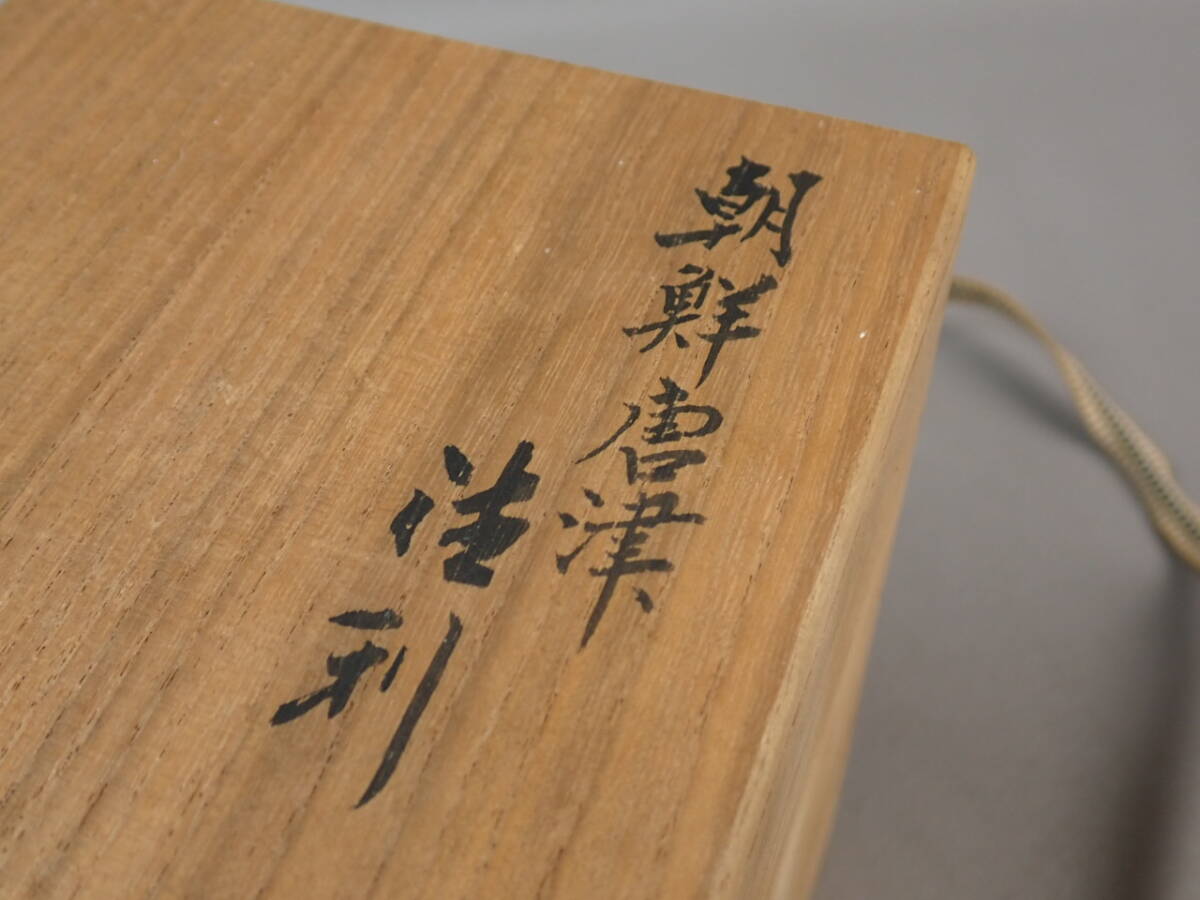 朝鮮唐津
徳利